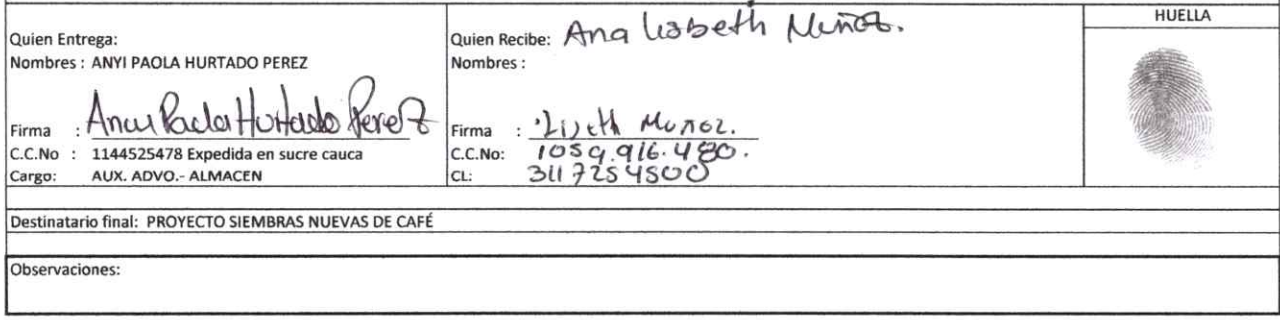 HUELLA
Quien Entrega:
Nombres : ANYI PAOLA HURTADO PEREZ
Firma : Anyi Paola Hurtado Perez
C.C.No : 1144525478 Expedida en sucre cauca
Cargo: AUX. ADVO.- ALMACEN
Quien Recibe: Ana lisbeth Muñoz.
Nombres :
Firma : Liseth Muñoz.
C.C.No: 1059.916.480.
CL: 3117254500
Destinatario final: PROYECTO SIEMBRAS NUEVAS DE CAFÉ
Observaciones: